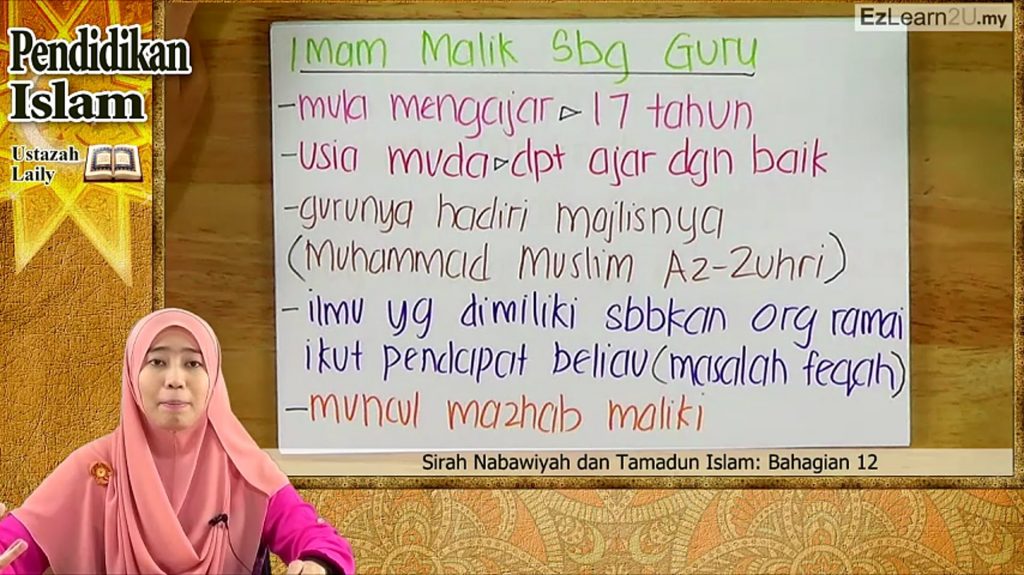 EzLearn2U.my
Pendidikan
Islam
Ustazah
Laily
Imam Malik Sbg Guru
- mula mengajar ▷ 17 tahun
- usia muda ▷ dpt ajar dgn baik
- gurunya hadiri majlisnya
(Muhammad Muslim Az-Zuhri)
- ilmu yg dimiliki sbbkan org ramai
ikut pendapat beliau (masalah feqah)
- muncul mazhab maliki
Sirah Nabawiyah dan Tamadun Islam: Bahagian 12